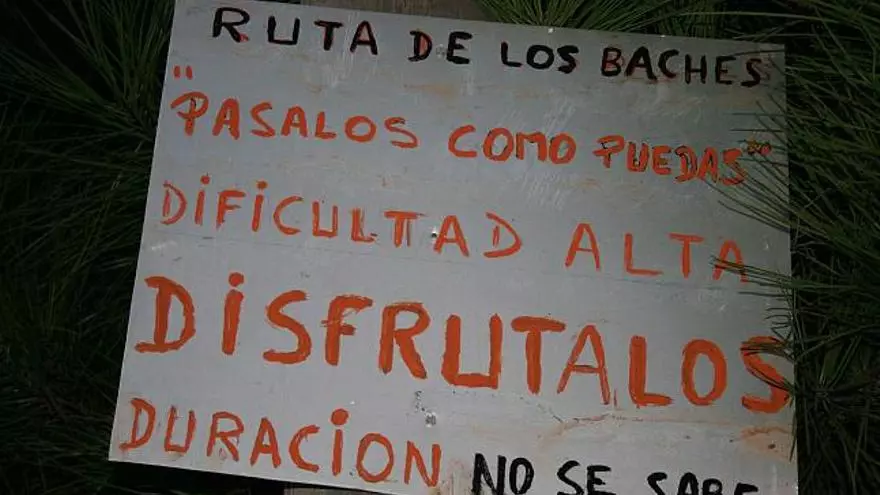 RUTA DE LOS BACHES
"PASALOS COMO PUEDAS"
DIFICULTAD ALTA
DISFRUTALOS
DURACION NO SE SABE